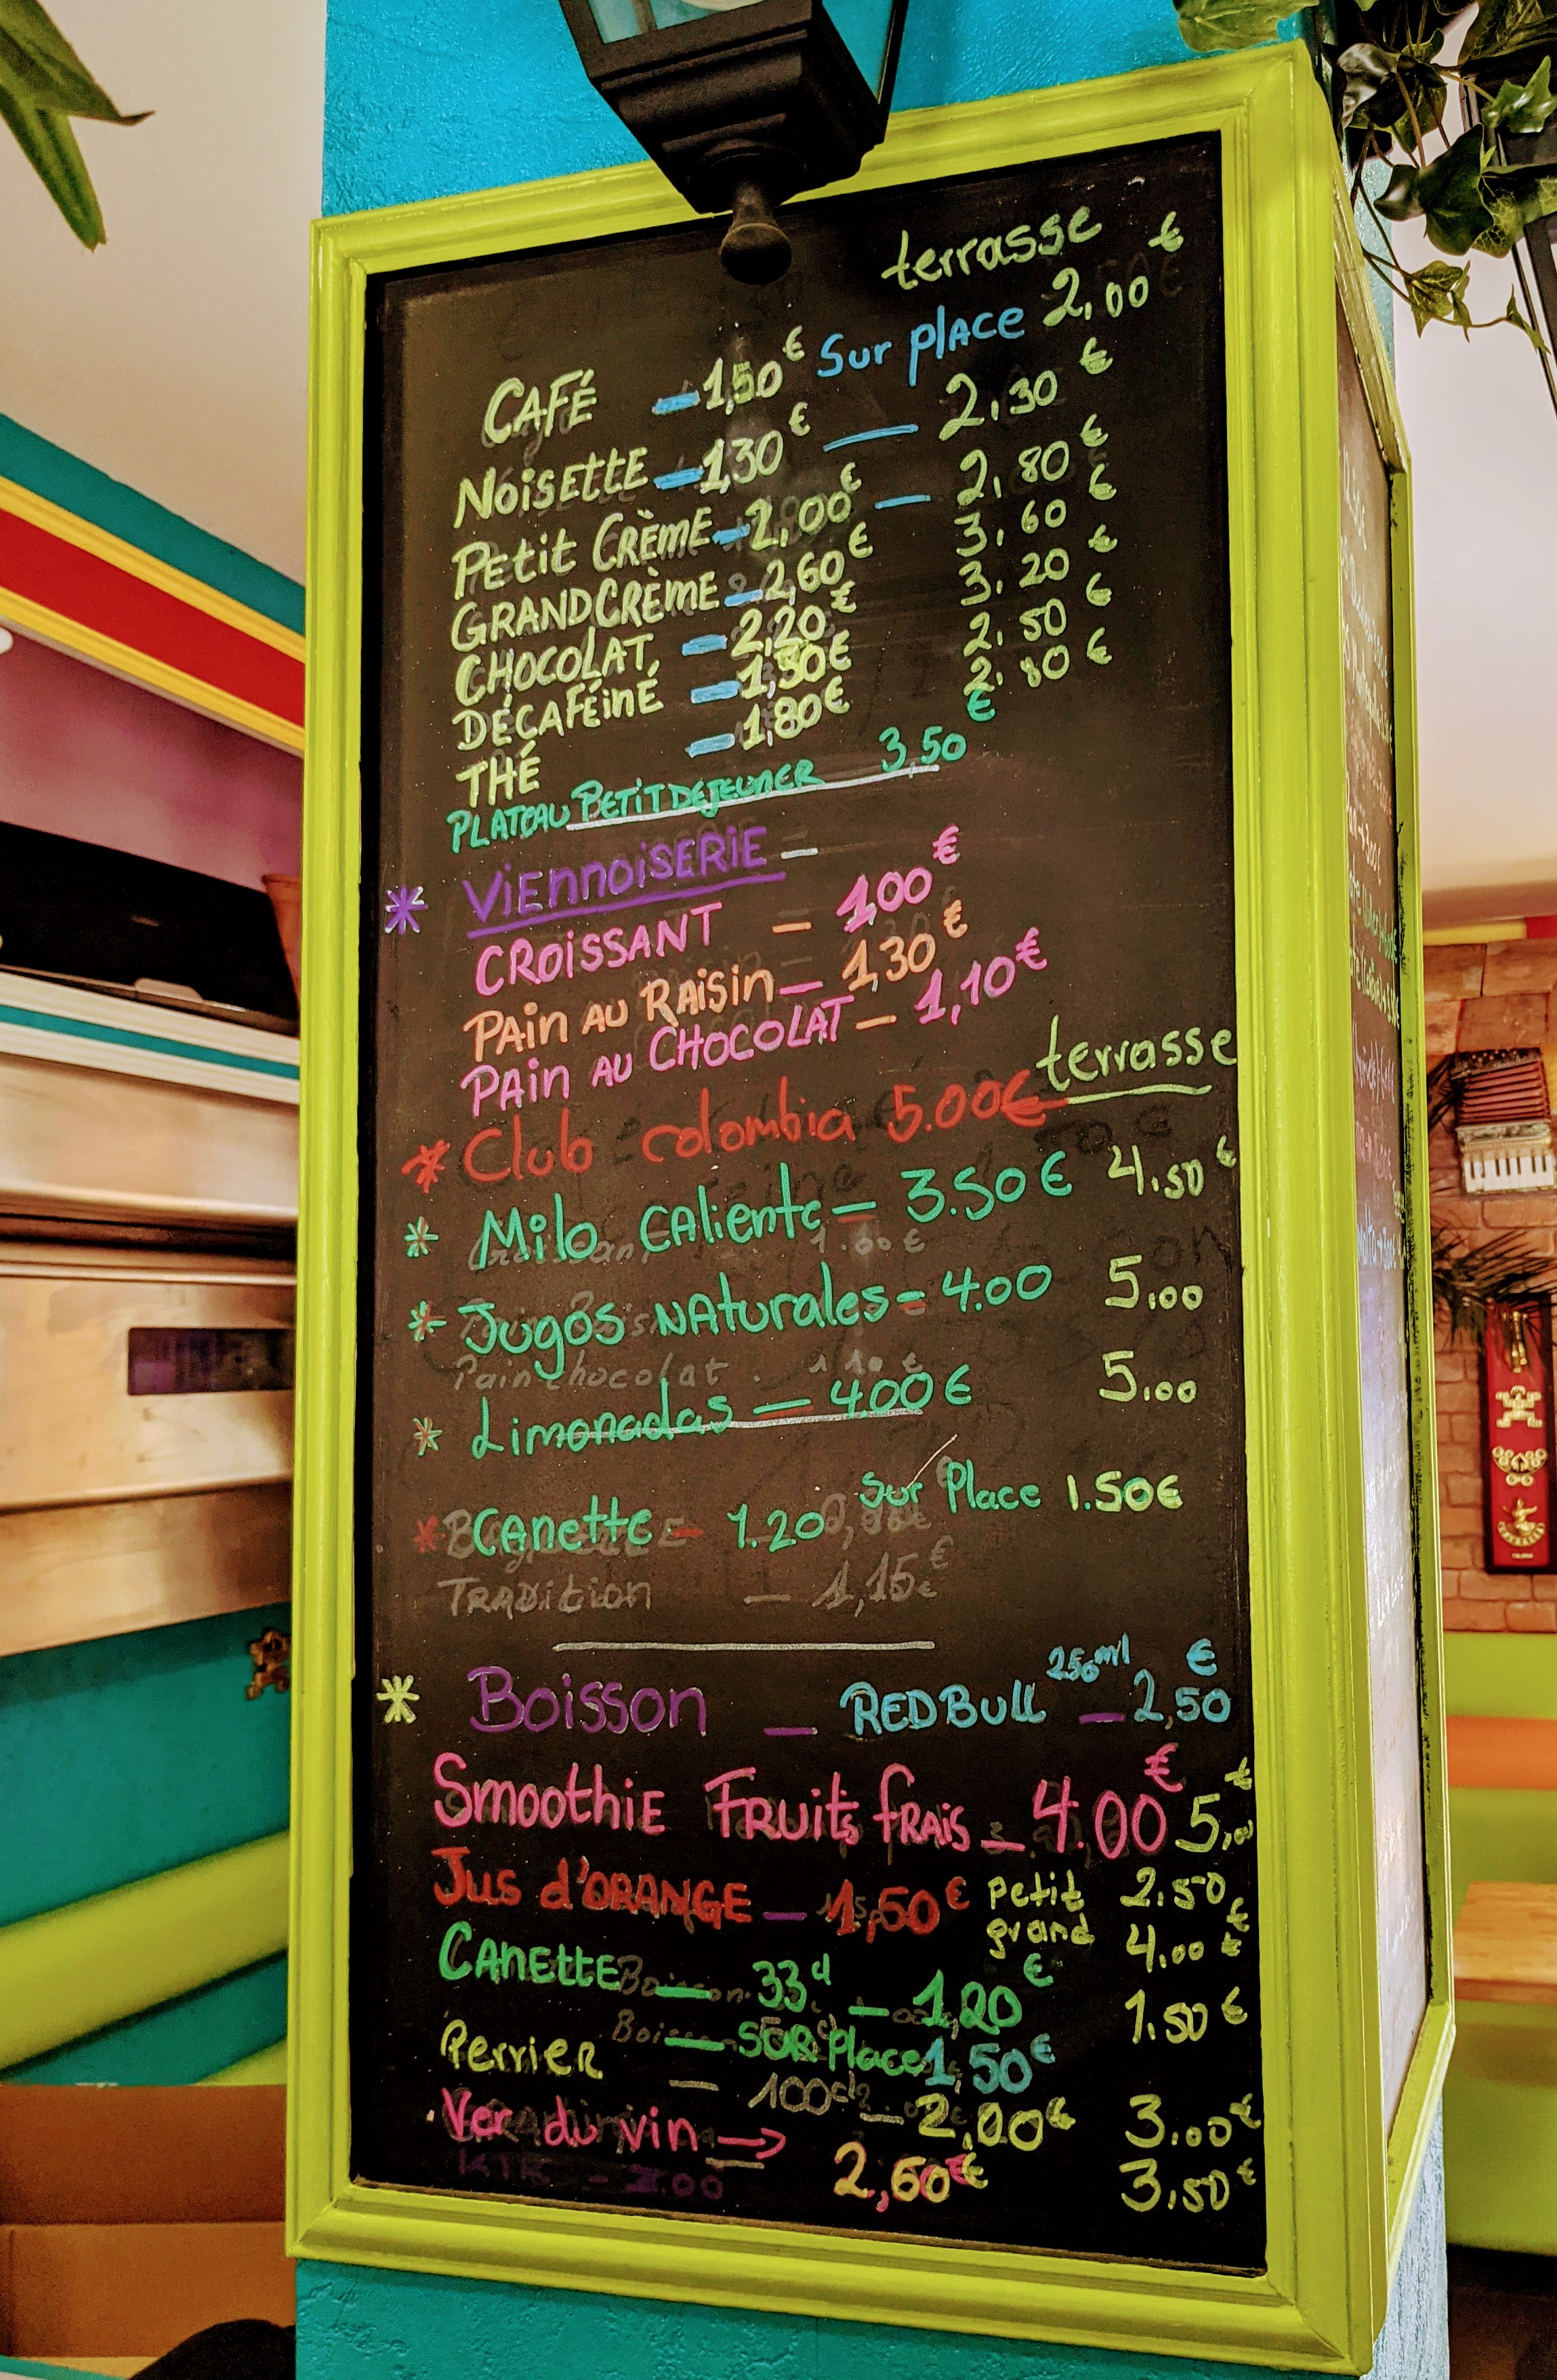 terrasse
CAFÉ — 1,50€ Sur place 2,00€
NOISETTE — 1,30€ — 2,30€
PETIT CRÈME — 2,00€ — 2,80€
GRAND CRÈME — 2,60€ 3,60€
CHOCOLAT — 2,20€ 3,20€
DÉCAFÉINÉ — 1,50€ 2,50€
THÉ — 1,80€ 2,80€
PLATEAU PETIT DEJEUNER 3,50€
* VIENNOISERIE —
CROISSANT — 1,00€
PAIN AU RAISIN — 1,30€
PAIN AU CHOCOLAT — 1,10€
terrasse
* Club colombia 5.00€
* Milo CAliente — 3.50€ 4.50€
* Jugos NAturales = 4.00 5,00
Pain chocolat . 1.10 €
* Limonadas — 4.00€ 5,00
* CAnette — 1.20 sur Place 1.50€
TRADITION — 1,15€
* Boisson — RED BULL 250ml — 2,50€
Smoothie FRUits fRAis — 4.00€ 5,00€
Jus d'ORANGE — 1,50€ petit 2.50€
grand 4.00€
CANEttE — 33cl — 1,20€ 1.50€
— SUR Place 1,50€
PerriER — 100cl — 2,00€ 3.00€
Ver du vin → 2,60€ 3,50€
KIR - 2.00